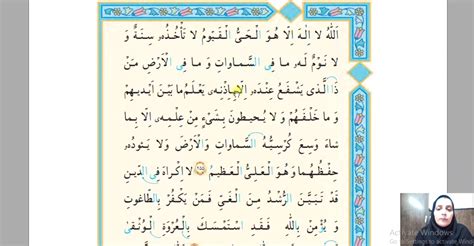 اَللّٰهُ لا اِلٰهَ اِلّا هُوَ الْحَیُّ الْقَیُّومُ لا تَأْخُذُهُ سِنَةٌ وَ
لا نَوْمٌ لَهُ ما فِی السَّماواتِ وَ ما فِی الْأَرْضِ مَنْ
ذَا الَّذی یَشْفَعُ عِنْدَهُ اِلّا بِاِذْنِهِ یَعْلَمُ ما بَیْنَ اَیْدیهِمْ
وَ ما خَلْفَهُمْ وَ لا یُحیطونَ بِشَیْءٍ مِنْ عِلْمِهِ اِلّا بِما
شاءَ وَسِعَ کُرْسِیُّهُ السَّماواتِ وَ الْأَرْضَ وَ لا یَئودُهُ
حِفْظُهُما وَ هُوَ الْعَلِیُّ الْعَظیمُ ۲۵۵ لا اِکْراهَ فِی الدّینِ
قَدْ تَبَیَّنَ الرُّشْدُ مِنَ الْغَیِّ فَمَنْ یَکْفُرْ بِالطّاغوتِ
وَ یُؤْمِنْ بِاللّٰهِ فَقَدِ اسْتَمْسَکَ بِالْعُرْوَةِ الْوُثْقیٰ
Activate Windows
Go to Settings to activate Wind